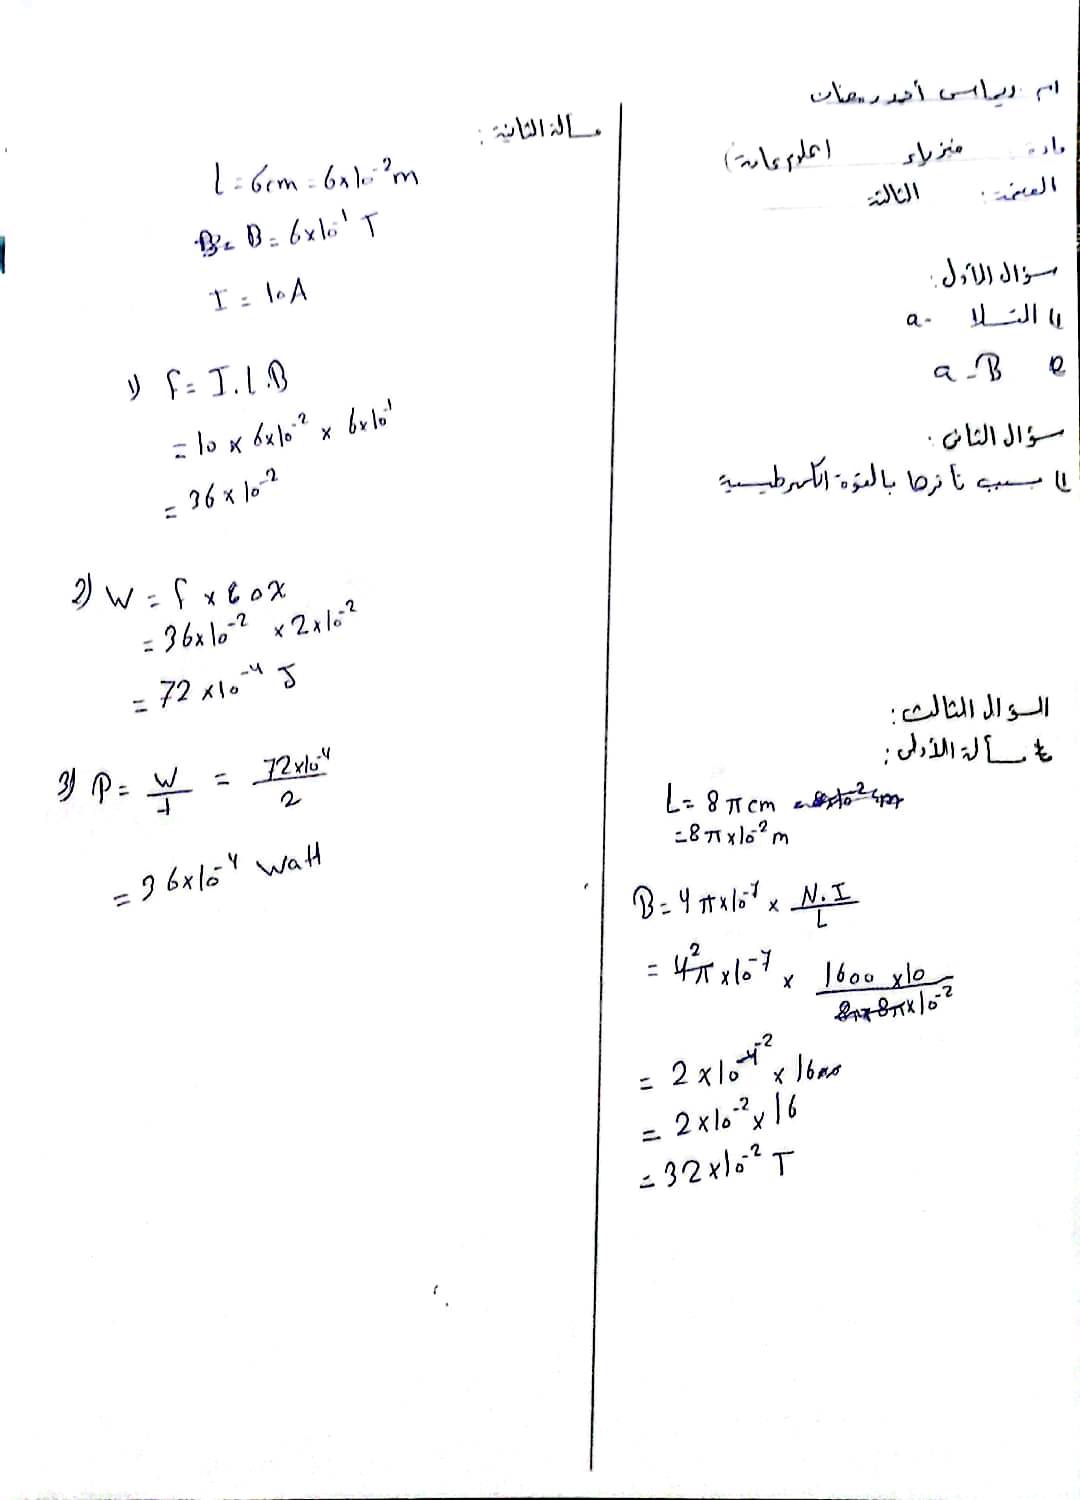 مادة: فيزياء (علوم عامة)
الثالثة
سؤال الأول:
1) التسلا - a
2) a - B
سؤال الثاني:
1) بسبب تأثرها بالقوة الكهرطيسية
السؤال الثالث:
مسألة الأولى:
L = 8 π cm
= 8 π × 10⁻² m
B = 4 π × 10⁻⁷ × N.I / L
= 4π × 10⁻⁷ × 1600 × 10 / 8π × 10⁻²
= 2 × 10⁻² × 1600
= 2 × 10⁻² × 16
= 32 × 10⁻² T
مسألة الثانية:
l = 6 cm = 6 × 10⁻² m
B = 6 × 10⁻¹ T
I = 10 A
1) F = I . L . B
= 10 × 6 × 10⁻² × 6 × 10⁻¹
= 36 × 10⁻²
2) W = F × Δx
= 36 × 10⁻² × 2 × 10⁻²
= 72 × 10⁻⁴ J
3) P = W / t = 72 × 10⁻⁴ / 2
= 36 × 10⁻⁴ watt